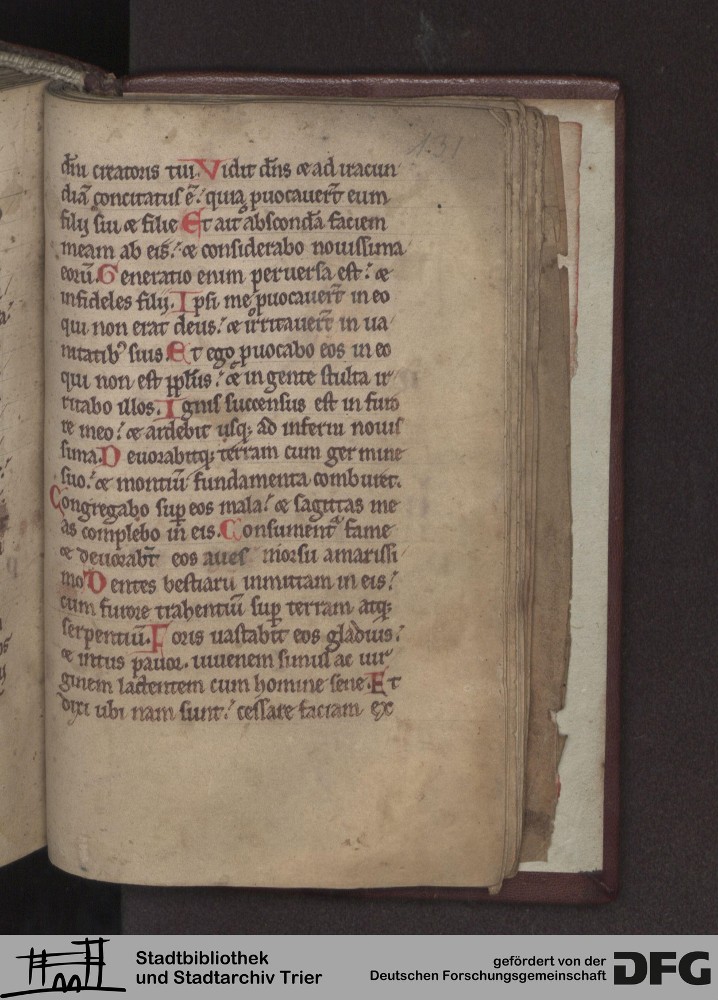 131
dñi creatoris tui. Vidit dñs & ad iracun
diã concitatus ẽ: quia ꝓuocauer̃t eum
filij sui & filie Et ait abscondã faciem
meam ab eis: & considerabo nouissima
eorũ. Generatio enim peruersa est: &
infideles filij. Ipsi me ꝓuocauer̃t in eo
qui non erat deus: & irritauer̃t in ua
nitatibꝰ suis. Et ego ꝓuocabo eos in eo
qui non est ppl̃us: & in gente stulta ir
ritabo illos. Ignis succensus est in furo
re meo: & ardebit usq; ad inferni nouis
sima. Deuorabitq; terram cum germine
suo: & montiũ fundamenta comburet.
Congregabo sup̲ eos mala: & sagittas me
as complebo in eis. Consumentᷣ fame
& deuorabt̃ eos aues morsu amarissi
mo Dentes bestiarũ inmittam in eis:
cum furore trahentiũ sup̲ terram atq;
serpentiũ. Foris uastabit eos gladius:
& intus pauor. iuuenem simul ac uir
ginem lactentem cum homine sene. Et
dixi ubi nam sunt: cessare faciam ex
Stadtbibliothek
und Stadtarchiv Trier
gefördert von der
Deutschen Forschungsgemeinschaft
DFG